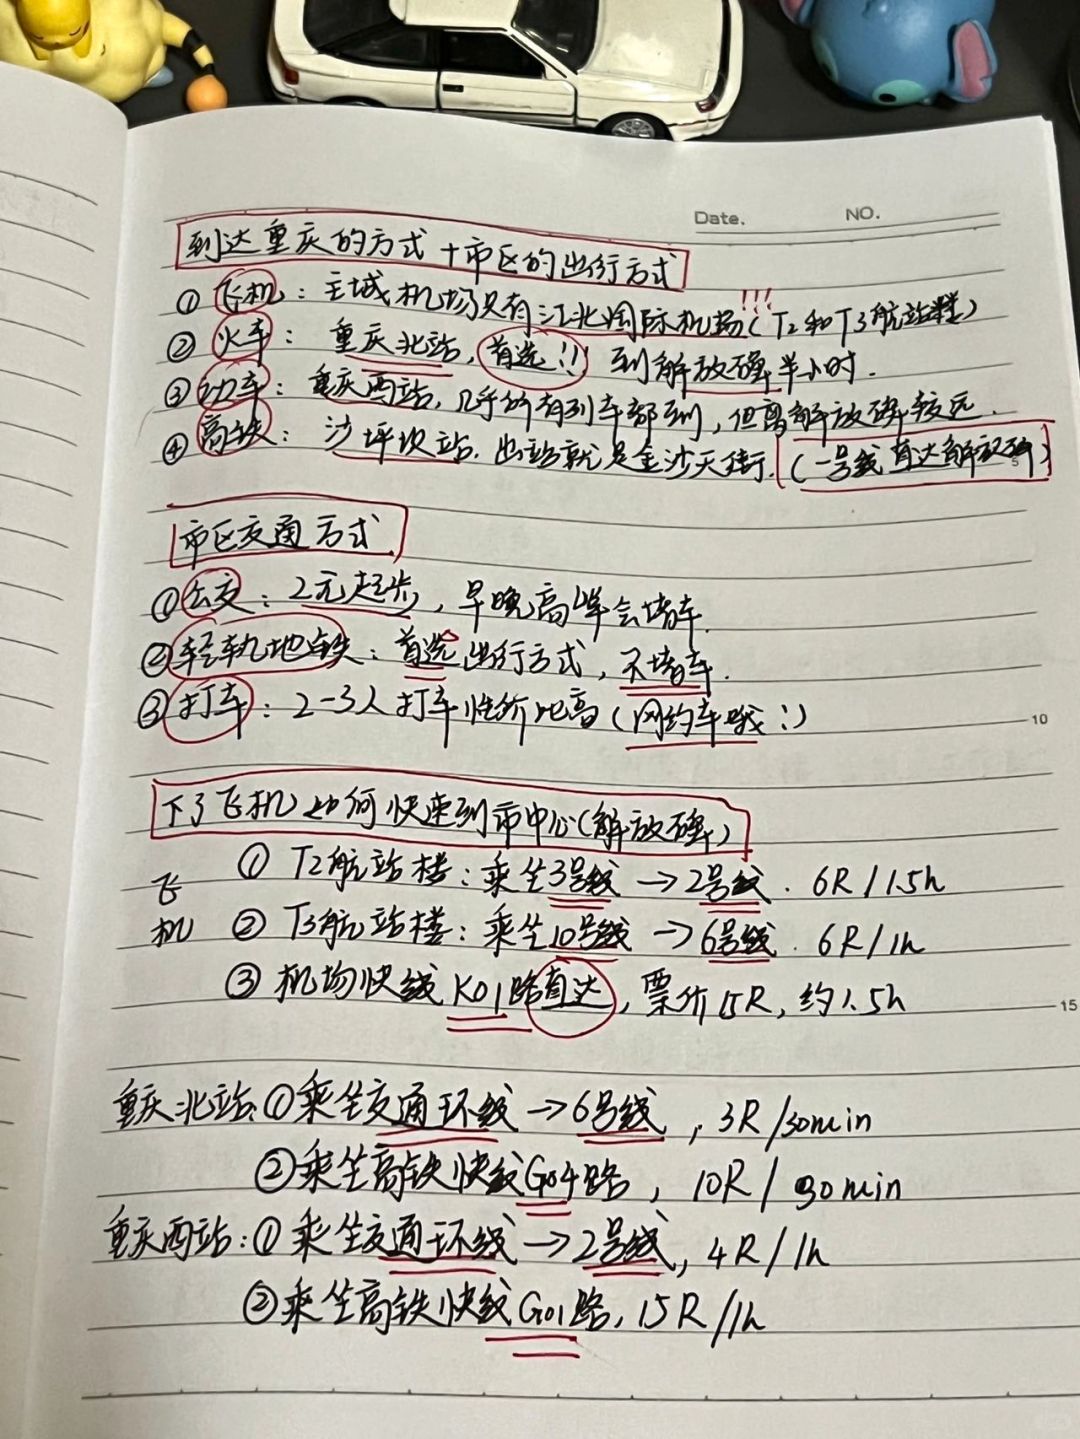 Date. NO.
到达重庆的方式+市区的出行方式
①飞机：主城机场只有江北国际机场!!!(T2和T3航站楼)
②火车：重庆北站，首选!!! 到解放碑半小时.
③动车：重庆西站，几乎所有列车都到，但离解放碑较远.
④高铁：沙坪坝站. 出站就是金沙天街. (一号线直达解放碑)
5
市区交通方式
①公交：2元起步，早晚高峰会堵车.
②轻轨地铁：首选出行方式，不堵车.
③打车：2-3人打车性价比高(网约车哦:)
10
下了飞机如何快速到市中心(解放碑)
飞机
①T2航站楼：乘坐3号线→2号线. 6R/1.5h
②T3航站楼：乘坐10号线→6号线. 6R/1h
③机场快线K01路直达，票价15R，约1.5h
15
重庆北站:①乘坐交通环线→6号线，3R/30min
②乘坐高铁快线G04路，10R/30min
重庆西站:①乘坐交通环线→2号线，4R/1h
②乘坐高铁快线G01路，15R/1h